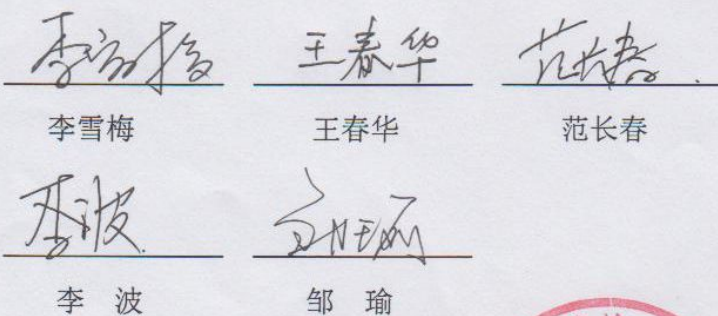 李雪梅 王春华 范长春
李雪梅 王春华 范长春
李波 邹瑜
李 波 邹 瑜